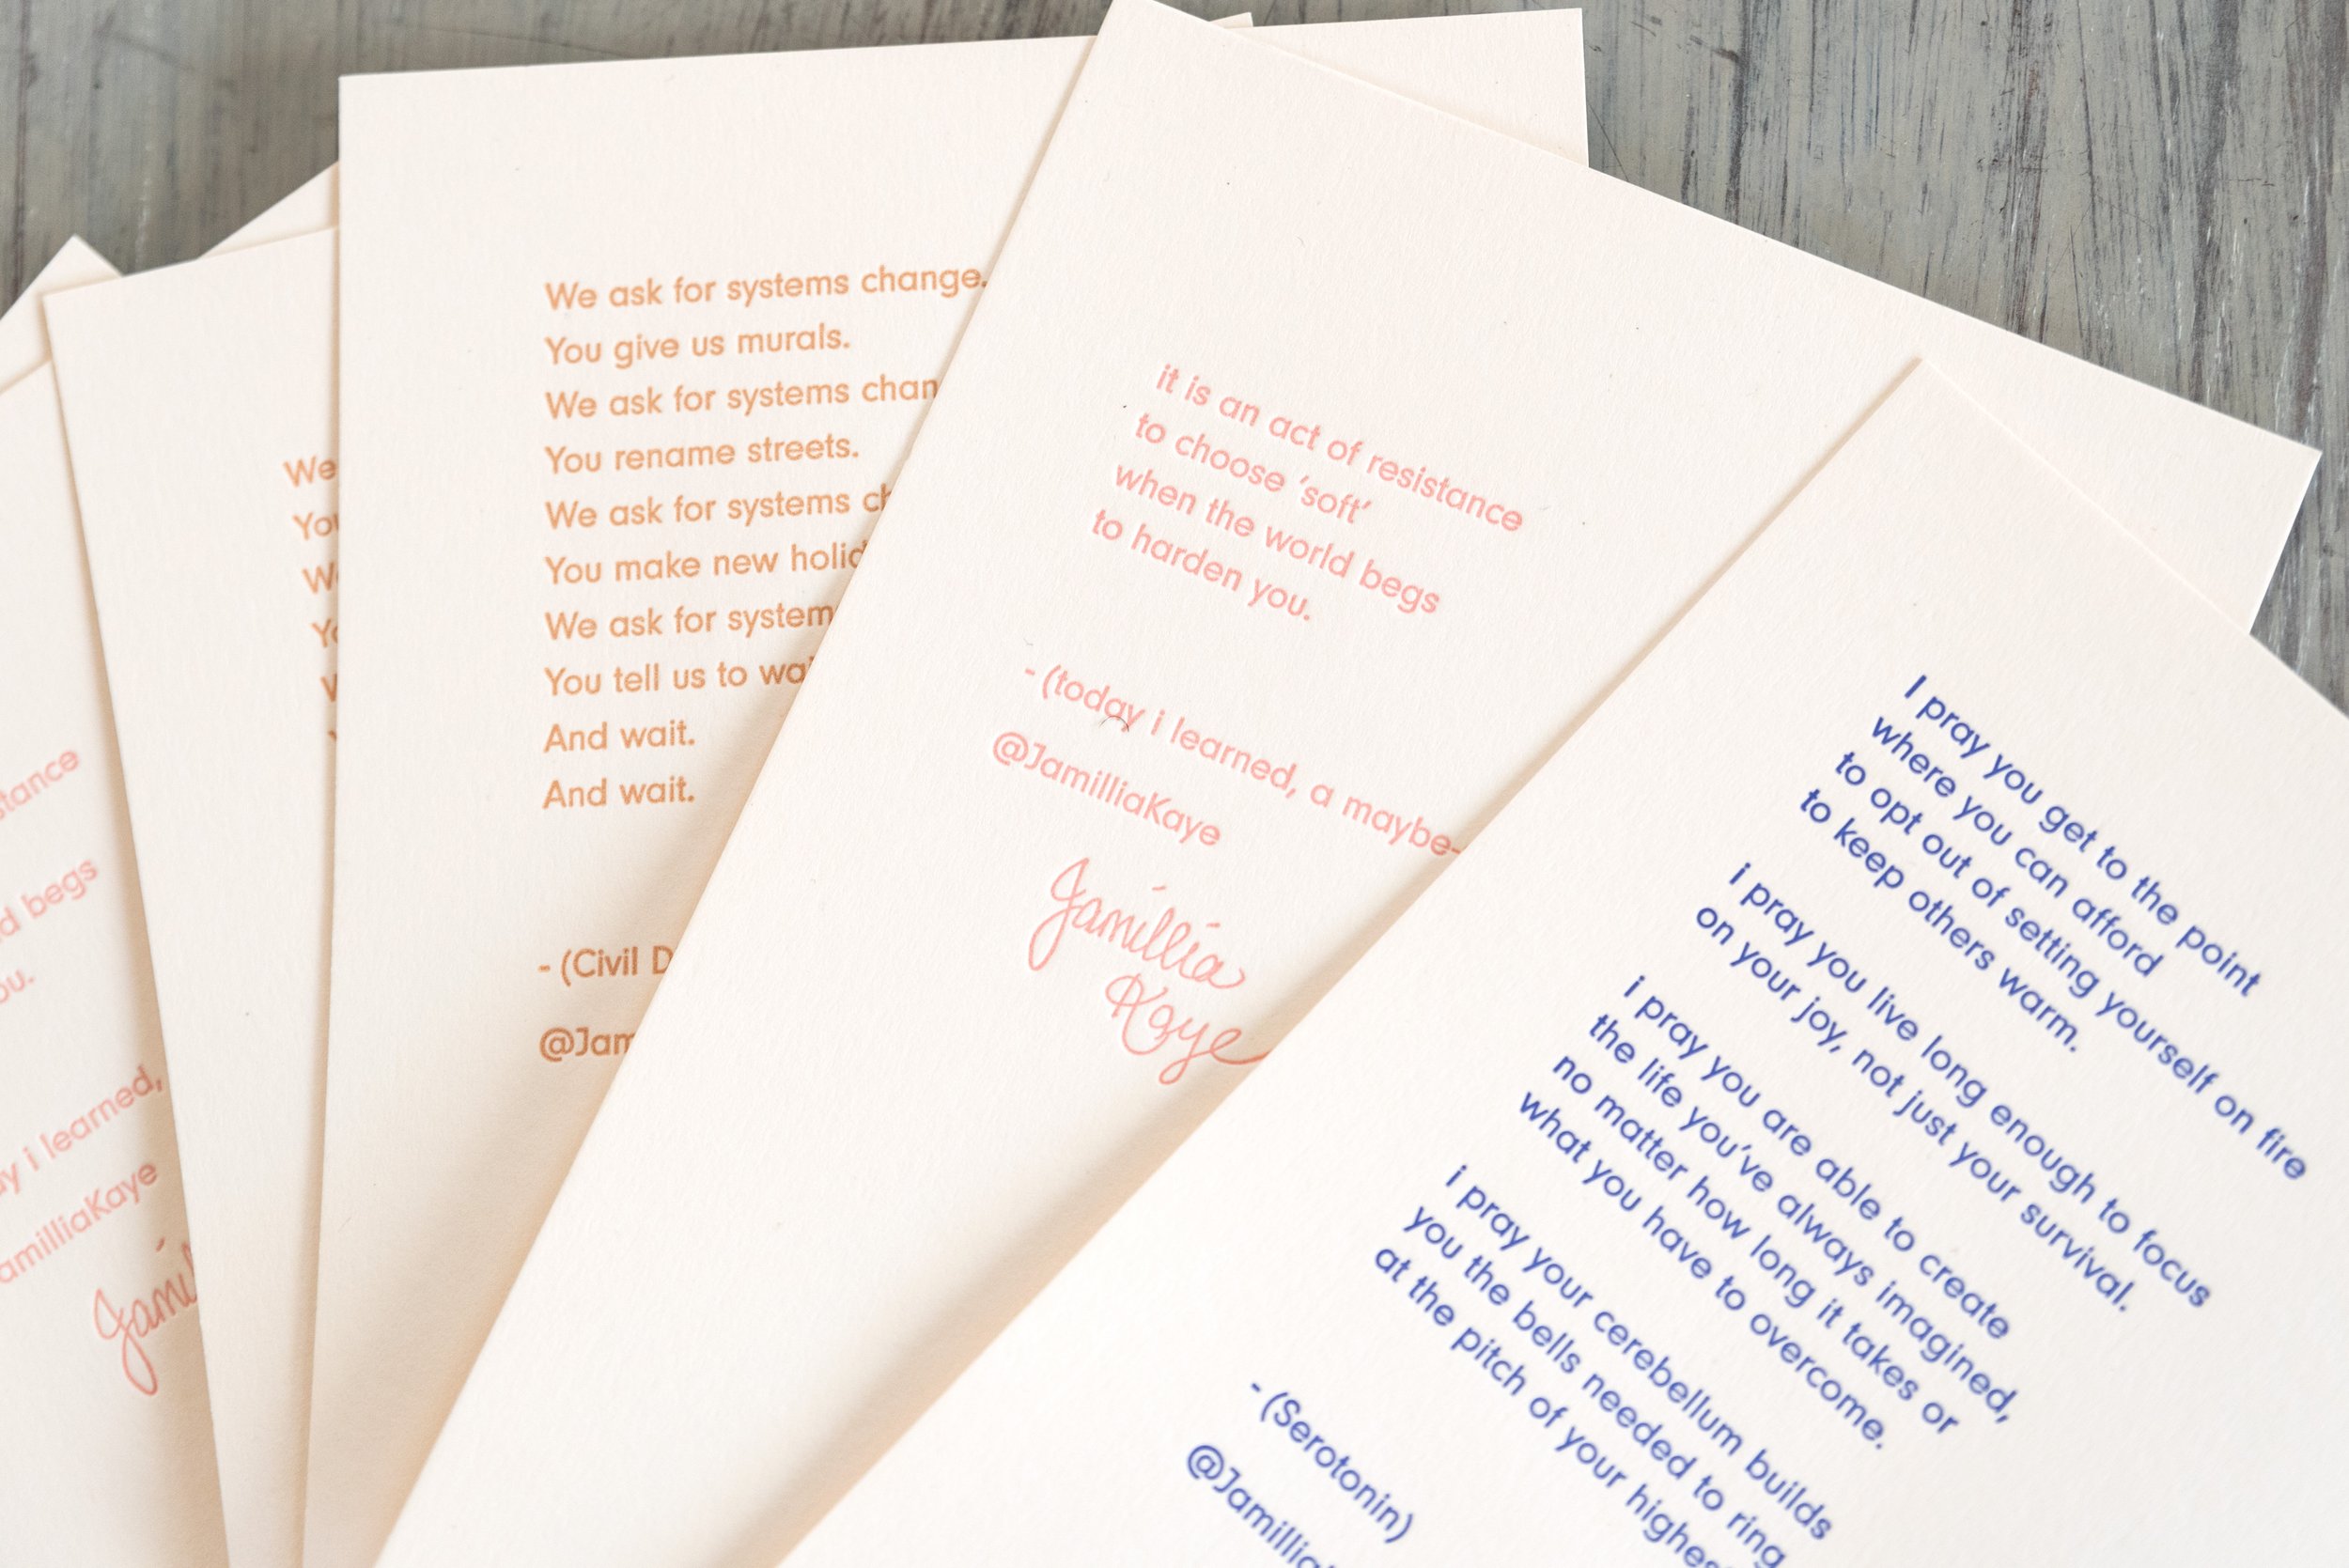 We
We ask for systems change.
You give us murals.
We ask for systems
You rename streets.
We ask for systems
You make new
We ask for
You tell us to
And wait.
And wait.
- (Civil
it is an act of resistance
to choose ‘soft’
when the world begs
to harden you.
- (today i learned, a maybe-
@JamilliaKaye
Jamillia
Kaye
I pray you get to the point
where you can afford
to opt out of setting yourself on fire
to keep others warm.
i pray you live long enough to focus
on your joy, not just your survival.
i pray you are able to create
the life you’ve always imagined,
no matter how long it takes or
what you have to overcome.
i pray your cerebellum builds
you the bells needed to ring
at the pitch of your
- (Serotonin)
begs
i learned,